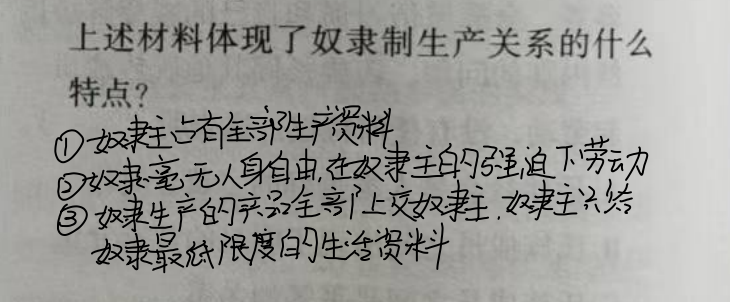 上述材料体现了奴隶制生产关系的什么
特点?
①奴隶主占有全部生产资料
②奴隶毫无人身自由,在奴隶主的强迫下劳动
③奴隶生产的产品全部上交奴隶主,奴隶主只给
奴隶最低限度的生活资料